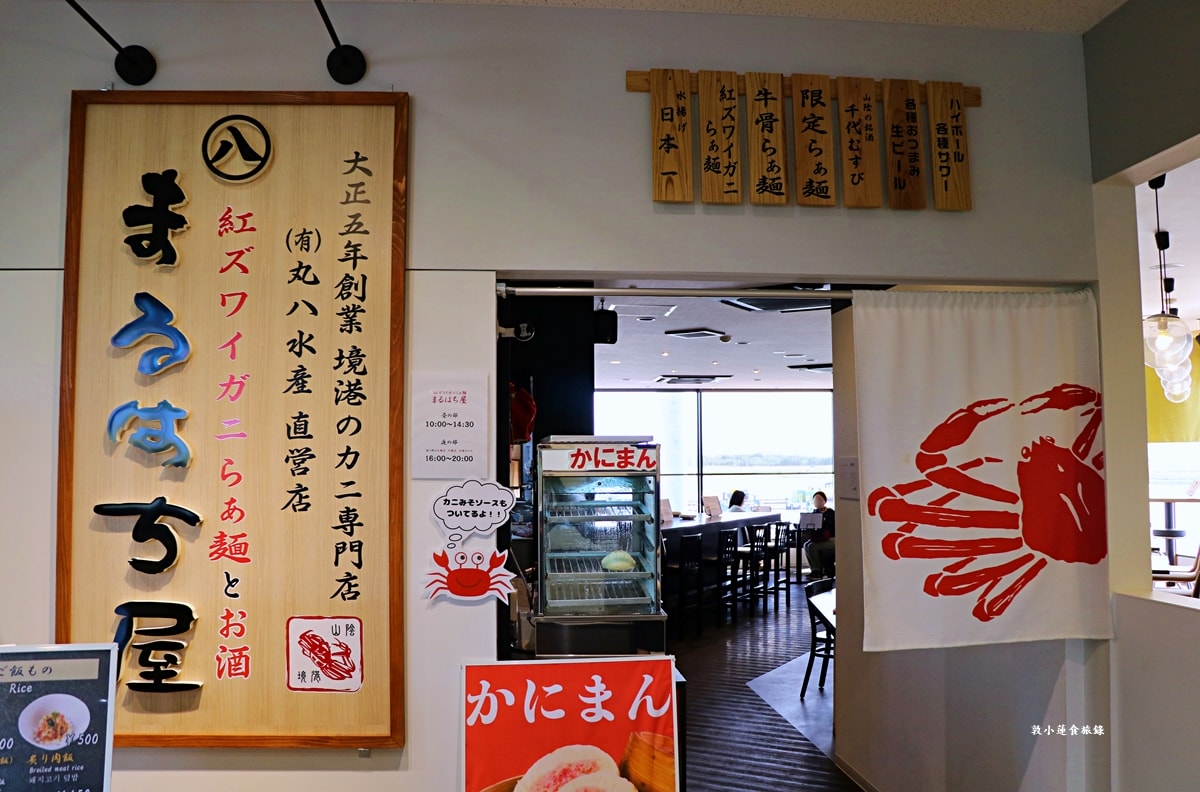 大正五年創業 境港のカニ専門店
(有)丸八水産 直営店
紅ズワイガニらぁ麺とお酒
八
まるはち屋
山陰
境港
ハイボール
各種サワー
各種おつまみ
生ビール
山陰の銘酒
千代むすび
限定らぁ麺
牛骨らぁ麺
紅ズワイガニ
らぁ麺
水揚げ
日本一
まるはち屋
昼の部
10:00〜14:30
夜の部
16:00〜20:00
カニみそソースも
ついてるよ！！
かにまん
かにまん
ご飯もの
Rice
¥500
炙り肉飯
Broiled meat rice
돼지고기 덮밥
敦小蓮食旅錄